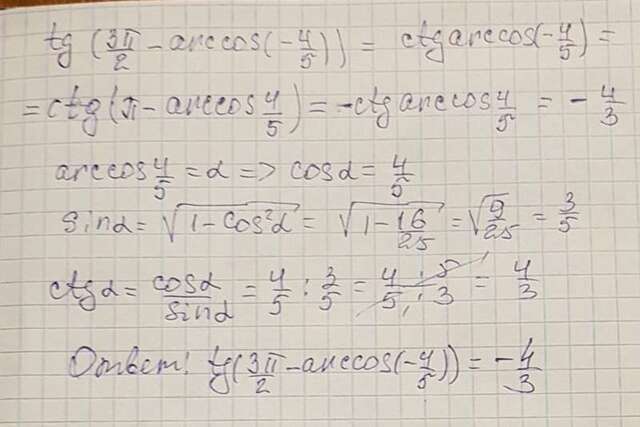 tg (3π/2 - arccos(-4/5)) = ctg arccos(-4/5) =
= ctg(π - arccos 4/5) = -ctg arccos 4/5 = - 4/3
arccos 4/5 = α => cosα = 4/5
sinα = √(1 - cos²α) = √(1 - 16/25) = √(9/25) = 3/5
ctgα = cosα/sinα = 4/5 : 3/5 = 4·5/5·3 = 4/3
Ответ: tg(3π/2 - arccos(-4/5)) = -4/3